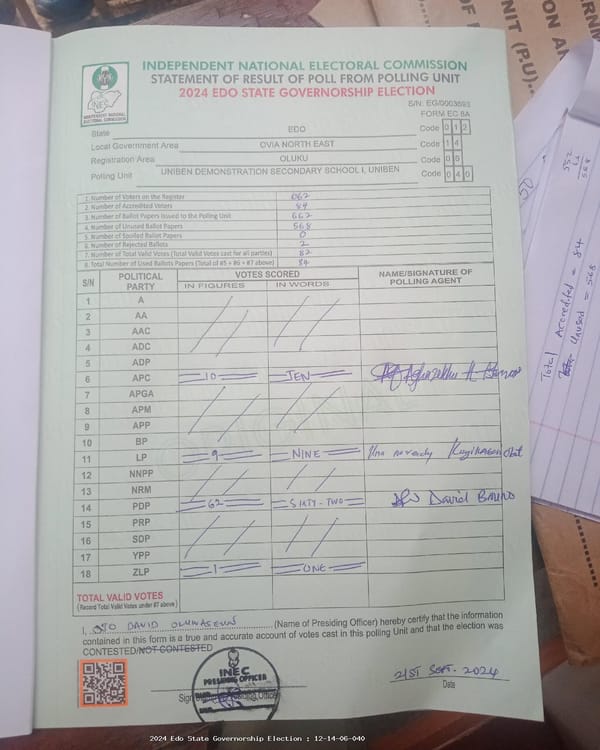 INDEPENDENT NATIONAL ELECTORAL COMMISSION
STATEMENT OF RESULT OF POLL FROM POLLING UNIT
2024 EDO STATE GOVERNORSHIP ELECTION
INEC
INDEPENDENT NATIONAL ELECTORAL COMMISSION
S/N: EG/0003693
FORM EC 8A
State EDO Code 0 1 2
Local Government Area OVIA NORTH EAST Code 1 4
Registration Area OLUKU Code 0 6
Polling Unit UNIBEN DEMONSTRATION SECONDARY SCHOOL I, UNIBEN Code 0 4 0
1. Number of Voters on the Register 662
2. Number of Accredited Voters 84
3. Number of Ballot Papers Issued to the Polling Unit 662
4. Number of Unused Ballot Papers 568
5. Number of Spoiled Ballot Papers 0
6. Number of Rejected Ballots 2
7. Number of Total Valid Votes (Total Valid Votes cast for all parties) 82
8. Total Number of Used Ballots Papers (Total of #5 + #6 + #7 above) 84
S/N POLITICAL PARTY VOTES SCORED NAME/SIGNATURE OF POLLING AGENT
IN FIGURES IN WORDS
1 A
2 AA
3 AAC
4 ADC
5 ADP
6 APC 10 TEN
7 APGA
8 APM
9 APP
10 BP
11 LP 9 NINE
12 NNPP
13 NRM
14 PDP 62 SIXTY-TWO David
15 PRP
16 SDP
17 YPP
18 ZLP 1 ONE
TOTAL VALID VOTES
(Record Total Valid Votes under #7 above)
I, OJO DAVID OLUWASEUN (Name of Presiding Officer) hereby certify that the information
contained in this form is a true and accurate account of votes cast in this polling Unit and that the election was
CONTESTED/NOT CONTESTED
INEC
PRESIDING OFFICER
21ST SEPT. 2024
Date
Total Accredited = 84
Unused = 568
UNIT (P.U)
2024 Edo State Governorship Election : 12-14-06-040